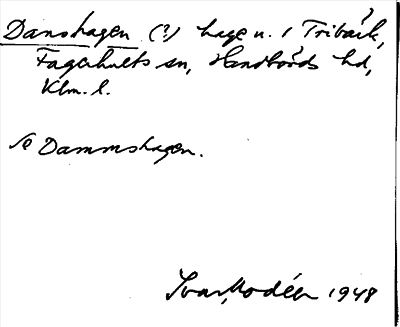 Danshagen (?) hage u. i Tribäck,
Fagerhults sn, Handbörds hd,
Klm. l.
se Dammshagen.
Ivar Modéer 1948